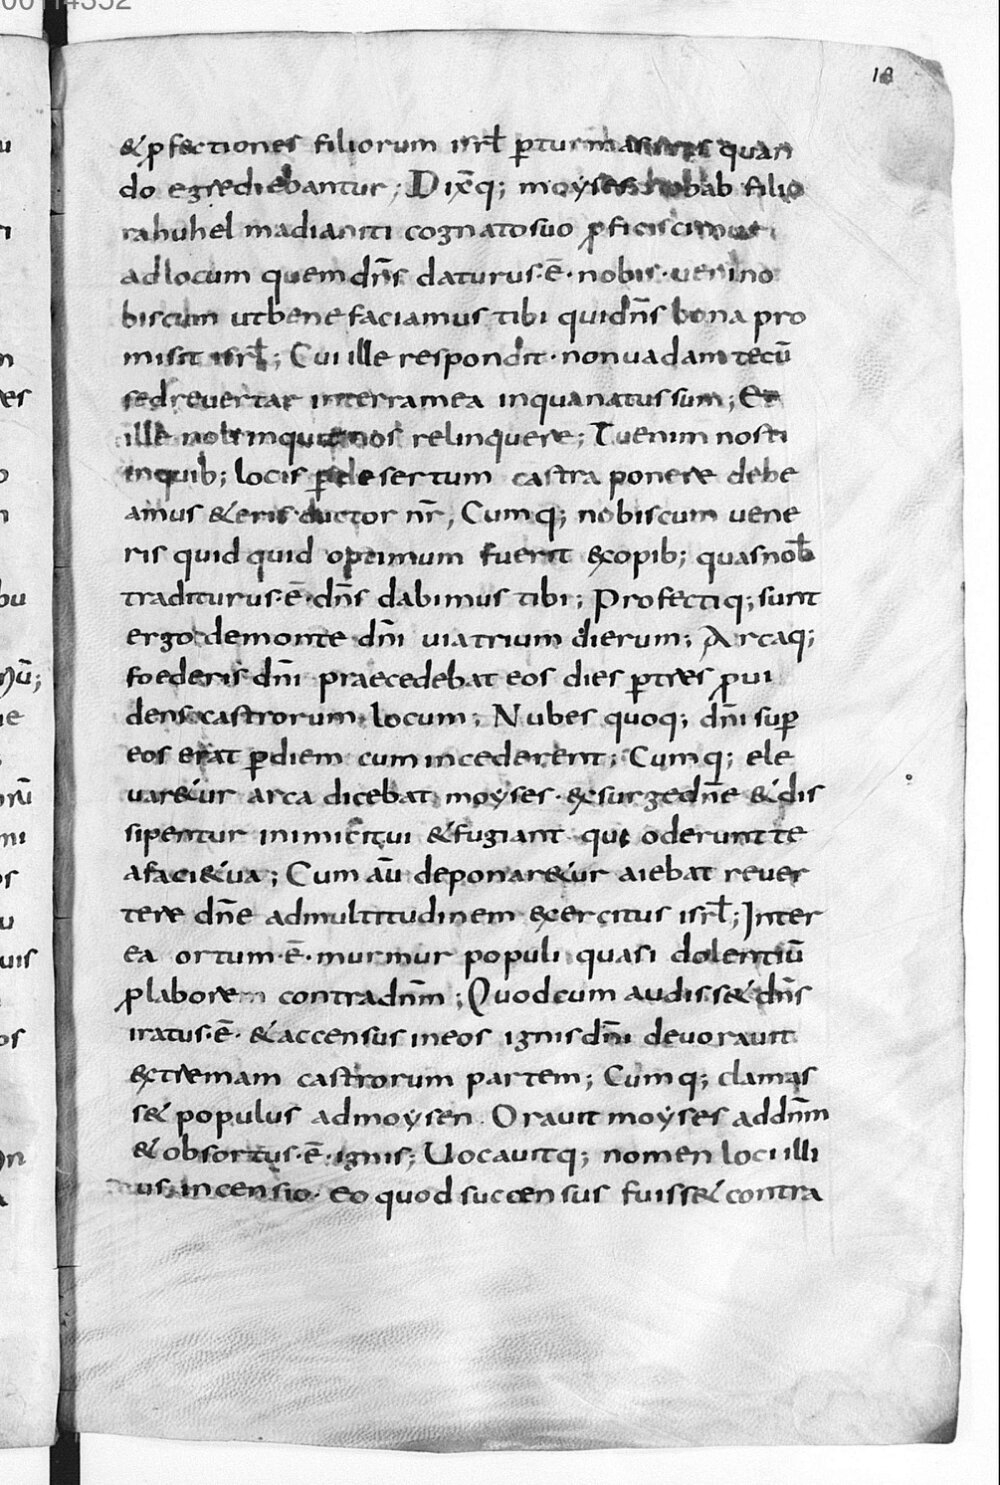 00114352
18
& ꝓfectiones filiorum isrł ꝑturmas suas quan
do egrediebantur; Dix̄q; moyses hobab filio
rahuhel madianiti cognatosuo ꝓficiscimur
adlocum quem dn̄s daturus·ē·nobis·ueni no
biscum utbene faciamus tibi quidn̄s bona pro
misit isrł; Cui ille respondit·nonuadam tecū
sedreuertar interramea inquanatus sum; Et
ille noli inquit nos relinquere; Tuenim nosti
inquib; locis ꝑdesertum castra ponere debe
amus &eris ductor nr̄, Cumq; nobiscum uene
ris quid quid optimum fuerit exopib; quasnob̄
traditurus·ē·dn̄s dabimus tibi; Profectiq; sunt
ergo demonte dn̄i uiatrium dierum; Arcaq;
foederis dn̄i praecedebat eos dies ꝑtres ꝓui
dens castrorum locum; Nubes quoq; dn̄i suꝑ
eos erat ꝑdiem cum incederent; Cumq; ele
uar&ur arca dicebat moyses·exsurgedn̄e &dis
sipentur inimicitui &fugiant qui oderunt te
afaci&ua; Cum aū deponar&ur aiebat reuer
tere dn̄e admultitudinem exercitus isrł; Inter
ea ortum·ē·murmur populi quasi dolentiū
ꝓlaborem contradn̄m; Quodcum audiss& dn̄s
iratus·ē·&accensus ineos ignis dn̄i deuorauit
extremam castrorum partem; Cumq; clamas
s& populus admoysen Orauit moyses addn̄m
&obsortus·ē·ignis; Uocauitq; nomen loci illi
us, incensio· eo quod succensus fuiss& contra